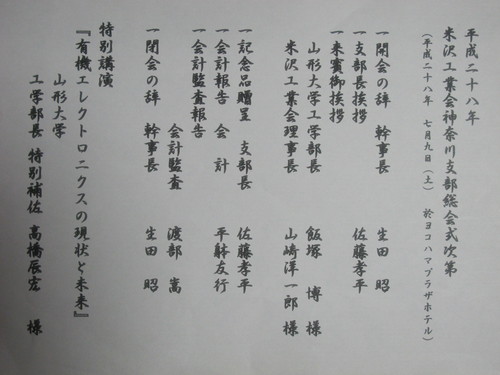 平成二十八年
米沢工業会神奈川支部総会式次第
（平成二十八年 七月九日（土） 於ヨコハマプラザホテル）
一開会の辞 幹事長 生田 昭
一支部長挨拶 佐藤孝平
一来賓御挨拶
山形大学工学部長 飯塚 博 様
米沢工業会理事長 山崎洋一郎 様
一記念品贈呈 支部長 佐藤孝平
一会計報告 会 計 平躰友行
一会計監査報告
会計監査 渡部 嵩
一閉会の辞 幹事長 生田 昭
特別講演
『有機エレクトロニクスの現状と未来』
山形大学
工学部長 特別補佐 高橋辰宏 様